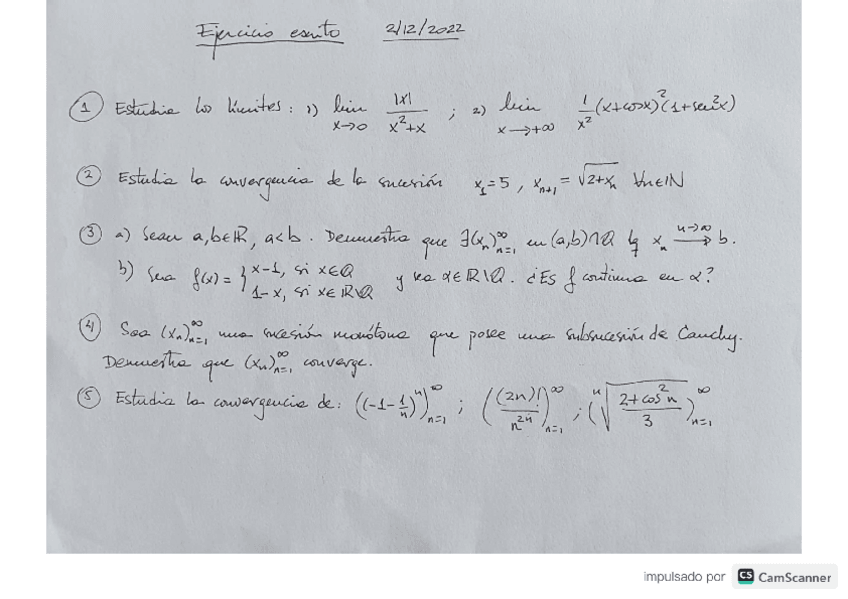 Ejercicio escrito 2/12/2022
① Estudia los límites: 1) lim x→0 |x|/(x²+x) ; 2) lim x→+∞ 1/x² (x+cosx)²(1+sen²x)
② Estudia la convergencia de la sucesión x₁=5, xₙ₊₁=√(2+xₙ) ∀n∈ℕ
③ a) Sean a,b∈ℝ, a<b. Demuestra que ∃(xₙ)ₙ₌₁^∞ en (a,b)∩ℚ tq xₙ →(n→∞) b.
b) Sea f(x)= { x-1, si x∈ℚ
1-x, si x∈ℝ\ℚ y sea α∈ℝ\ℚ. ¿Es f continua en α?
④ Sea (xₙ)ₙ₌₁^∞ una sucesión monótona que posee una subsucesión de Cauchy.
Demuestra que (xₙ)ₙ₌₁^∞ converge.
⑤ Estudia la convergencia de: ((-1-1/n)ⁿ)ₙ₌₁^∞ ; ((2n)!/n²ⁿ)ₙ₌₁^∞ ; (ⁿ√((2+cos²n)/3))ₙ₌₁^∞
impulsado por CS CamScanner